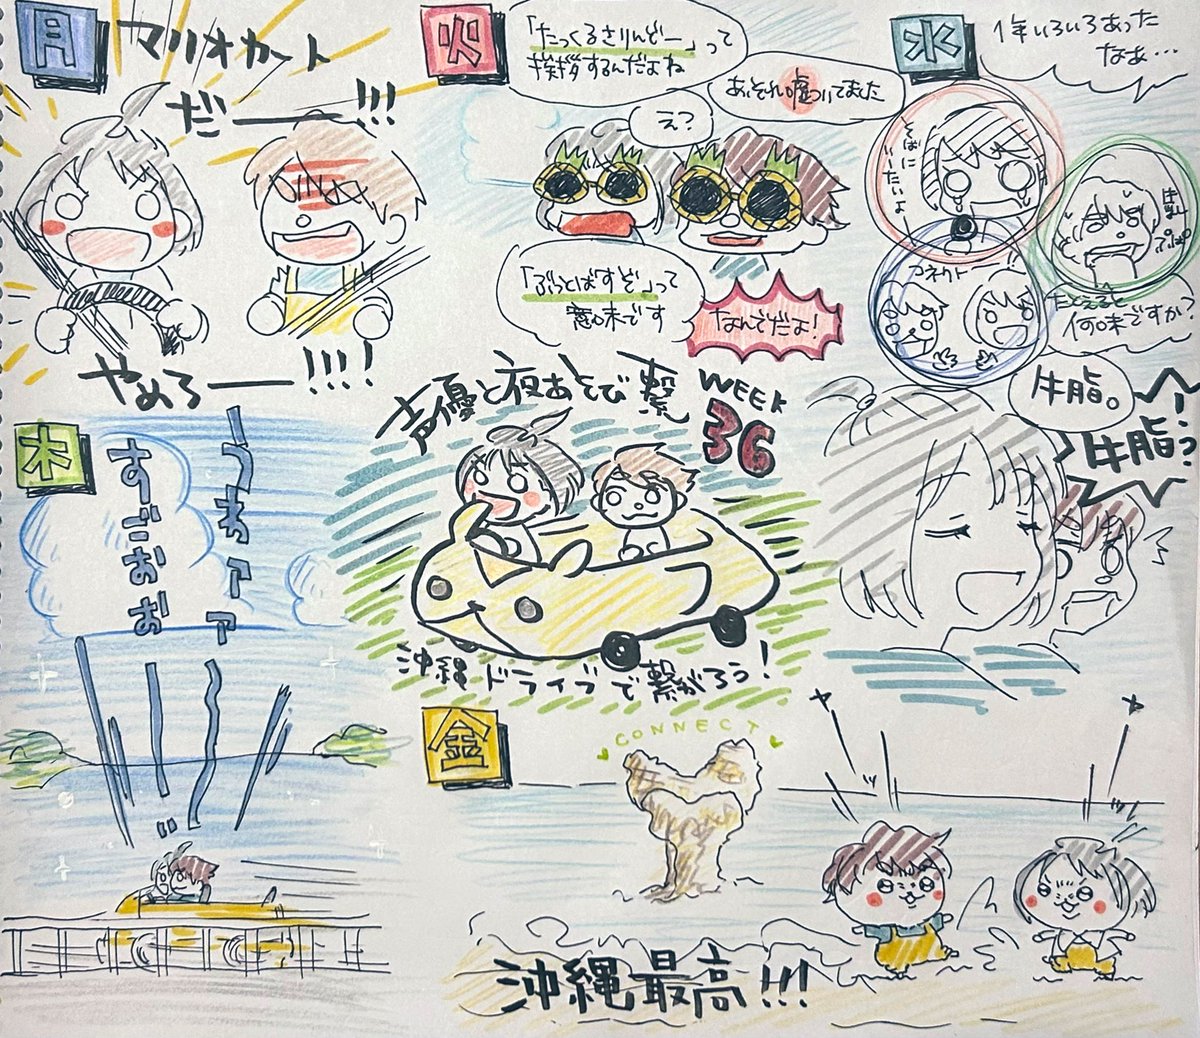 月
マリオカート
だー!!!
やめろー!!!!
火
「たっくるさりんどー」って
挨拶するんだよね
あ、それ嘘ついてました
え?
「ぶっとばすぞ」って
意味です
なんでだよ!
水
1年いろいろあった
なあ…
そばに
いーたいよ
牛乳
ぷぱぷぱ
コネクトー
たとえると
何味ですか?
牛脂。
牛脂?
声優と夜あそび 繋 WEEK
36
沖縄ドライブで繋がろう!
木
うわァァ
すごおお
金
CONNECT
ヤ
ヤ
ッ
沖縄最高!!!